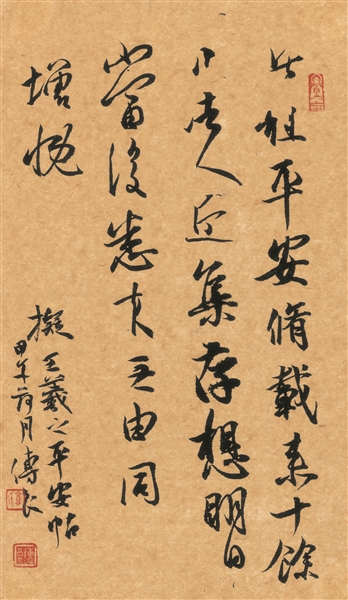 此粗平安脩載來十餘
日諸人近集存想明日
當復悉來無由同
增慨
擬王羲之平安帖
甲午荷月